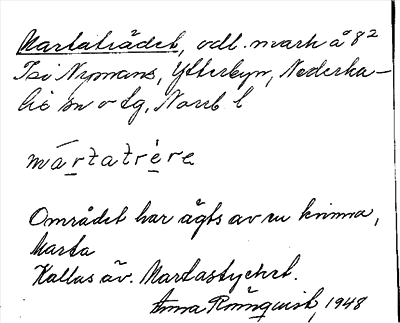 Martaträdet, odl. mark å 8²
Isi Nymans, Ytterbyn, Nederka-
lix sn o tg, Norrb l
mártatrère
Området har ägts av en kvinna,
Marta
Kallas äv. Martastycket.
Anna Rönnquist, 1948